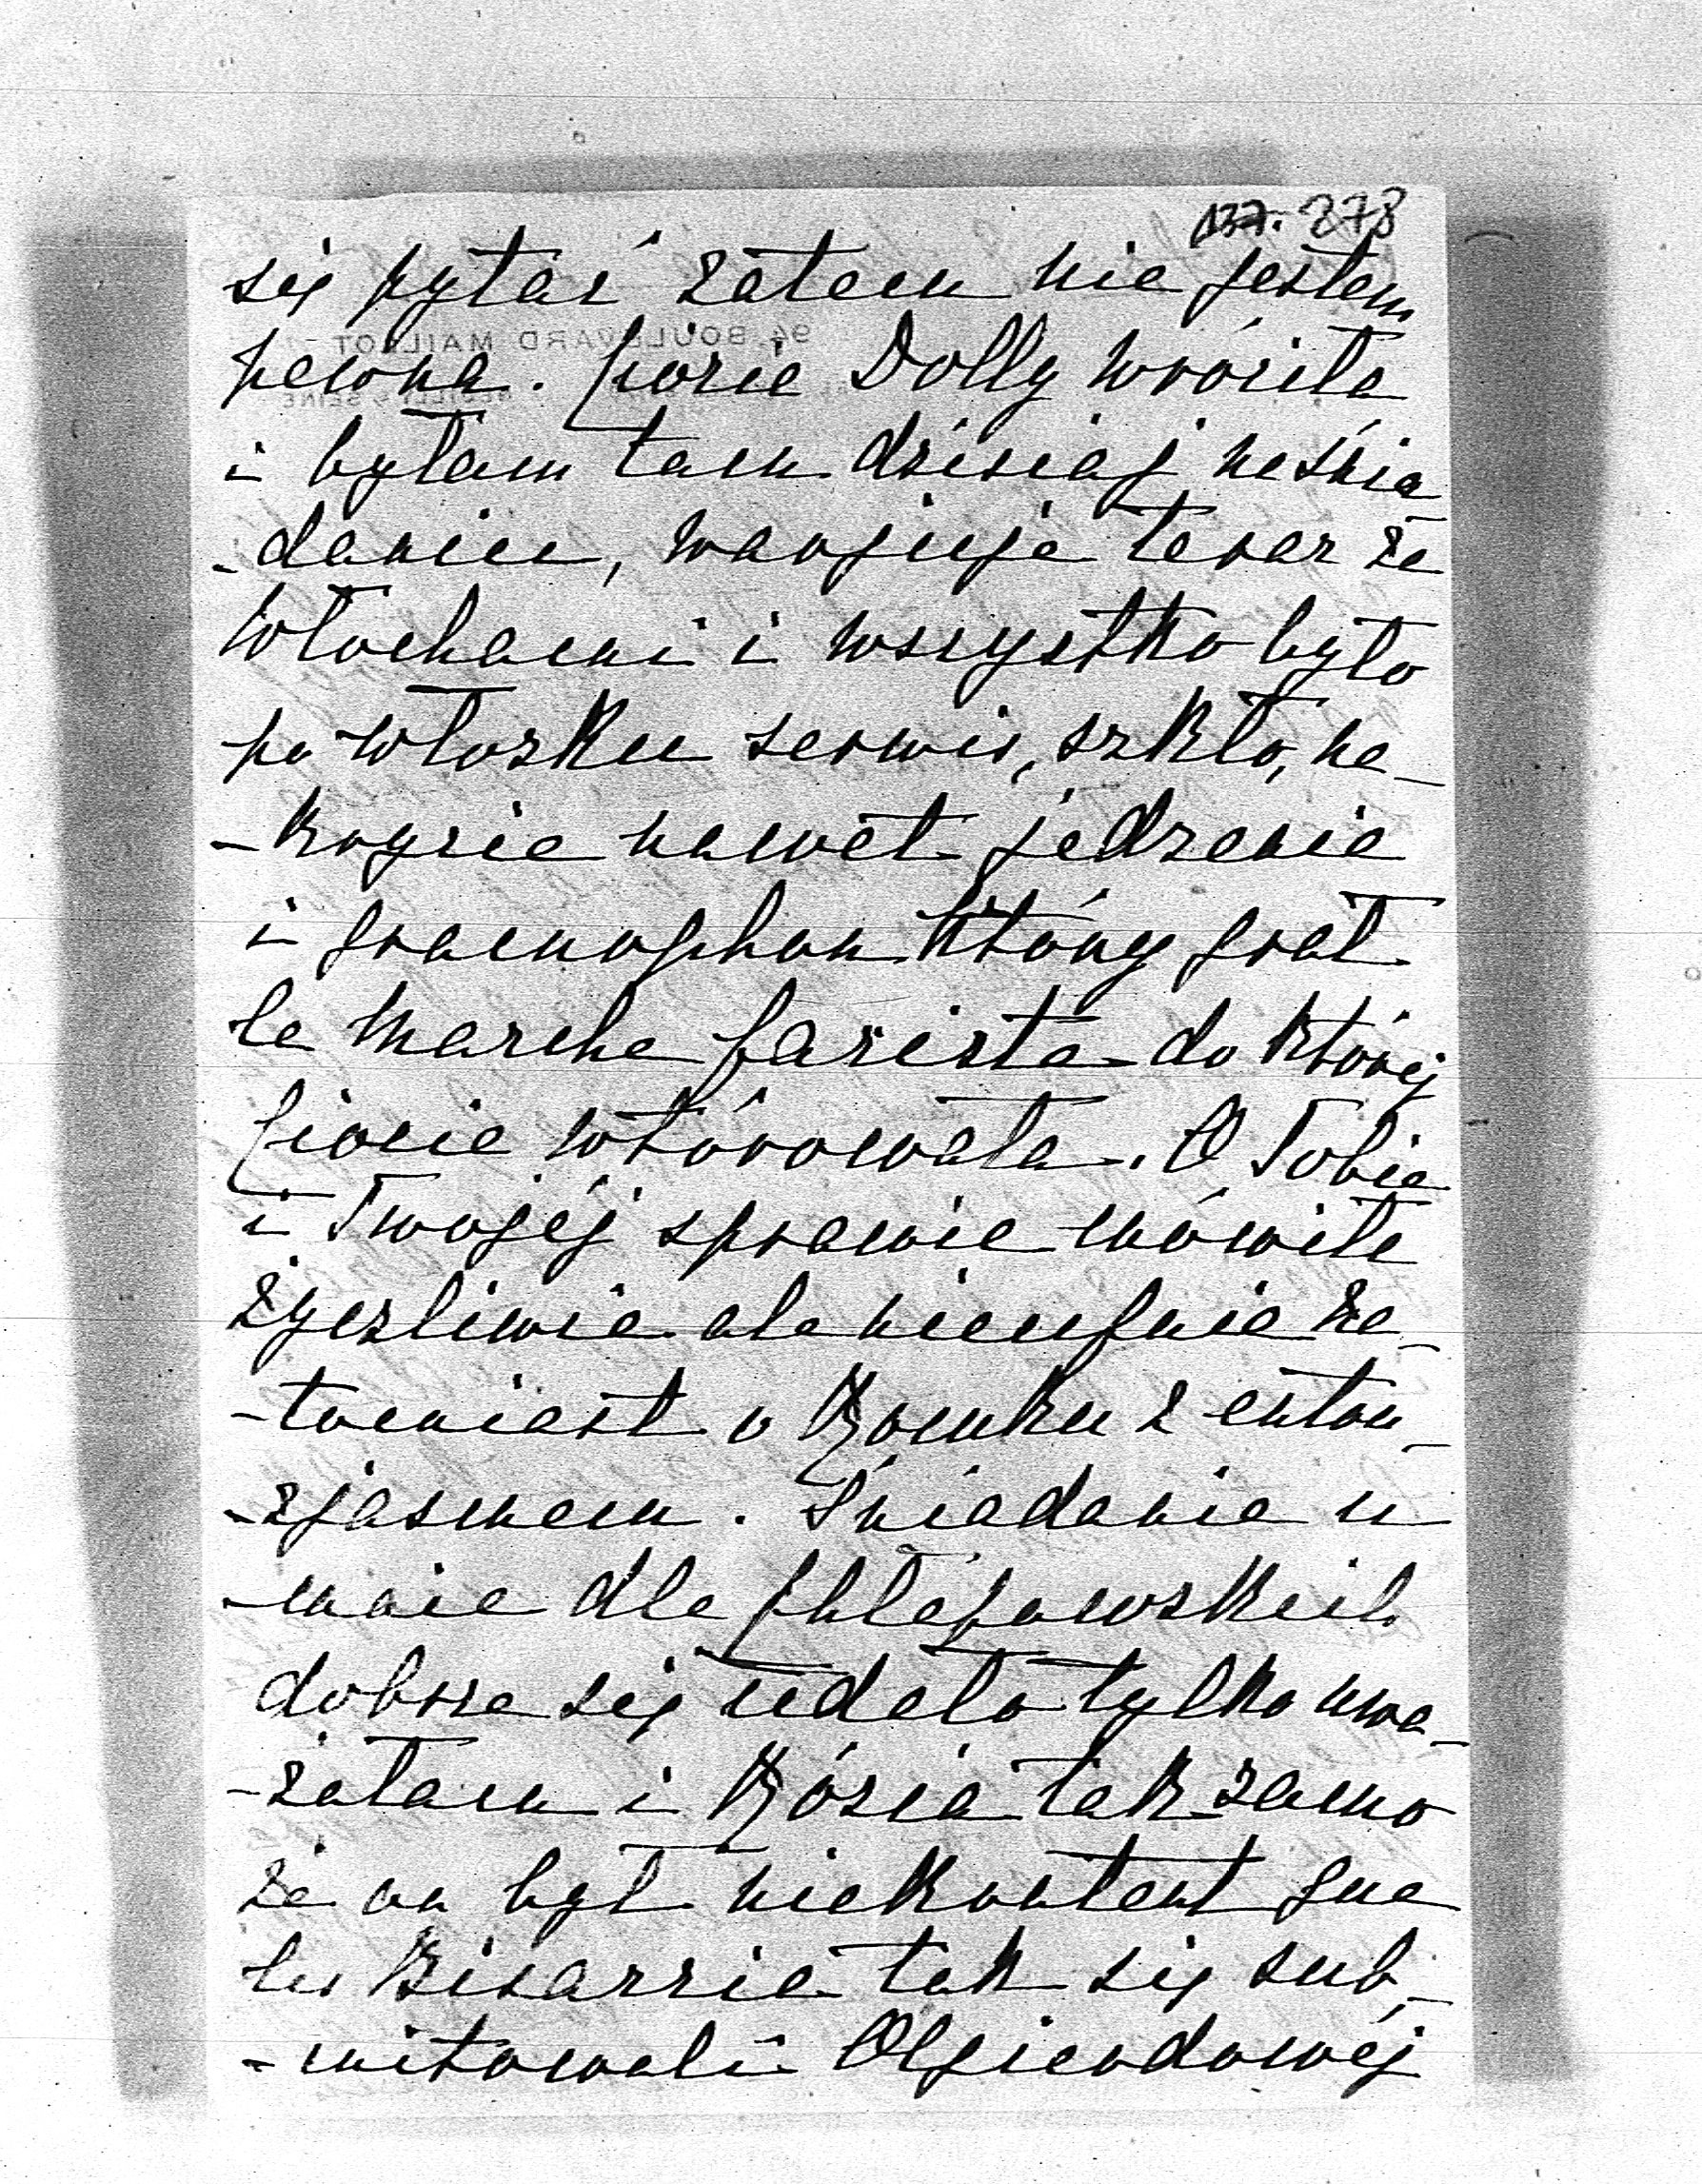 137. 278
się pytać zatem nie jestem
pewna. Ciocie Dolly wróciła
i byłam tam dzisiaj na śnia
-daniu, wariuje teraz ze
Włochami i wszystko było
po włosku serwis, szkło, na-
-krycie nawet jedzenie
i gramophon który grał
le Marche fascista do której
Ciocie wtórowała. O Tobie
i Twojej sprawie mówiła
życzliwie ale nieufnie na-
-tomiast o Romku z entu-
-zjasmem. Śniadanie u
-mnie dla Chłapowskich
dobrze się udało tylko uwa-
-żałam i Rózia tak samo
że on był niekontent que
les Bisarrie tak się sub-
-mitowali Olgierdowej